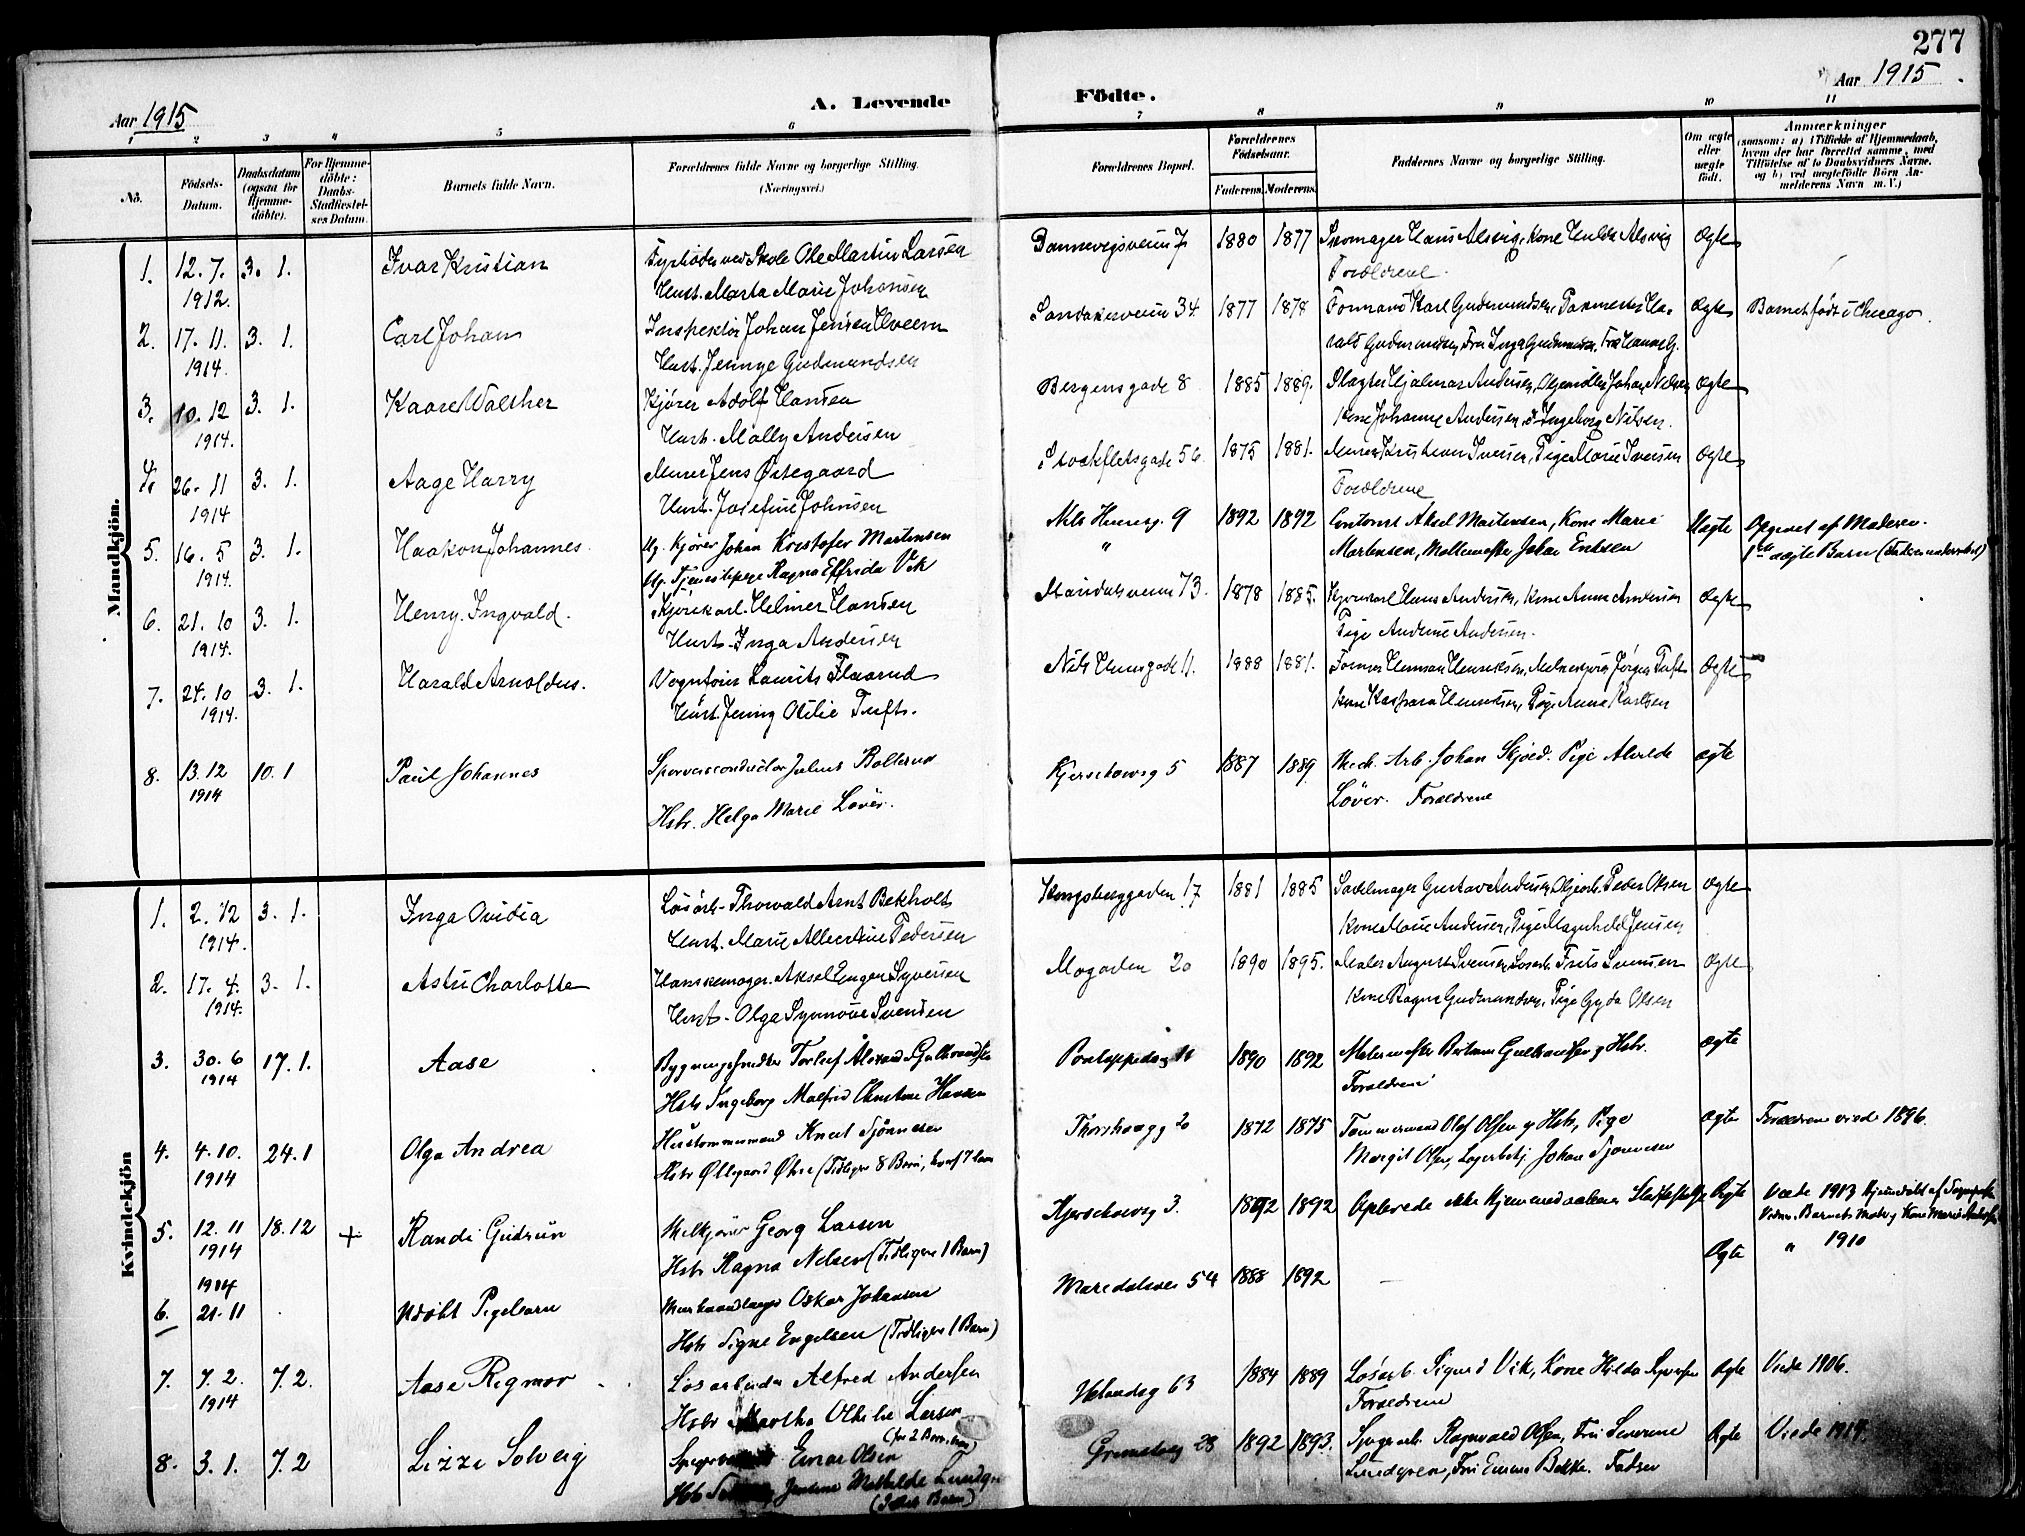 277
Aar 1915
A. Levende
Födte.
Aar 1915
1 2 3 4 5 6 7 8 9 10 11
No.
Födsels-Datum.
Daabsdatum (ogsaa for Hjemme-döbte).
For Hjemme-döbte: Daabs-Stadfæstel-ses Datum.
Barnets fulde Navn.
Forældrenes fulde Navne og borgerlige Stilling. (Næringsvei.)
Forældrenes Bopæl.
Forældrenes Födselsaar.
Faderens. Moderens.
Faddernes Navne og borgerlige Stilling.
Om ægte eller uægte födt.
Anmærkninger
(saasom: a) i Tilfælde af Hjemmedaab, hvem der har forrettet samme, med Tilföielse af to Daabsvidners Navne, og b) ved uægtefödte Börn An-melderens Navn m. V.)
Mandkjön.
1. 12. 7. 1912. 3. 1. Ivar Kristian
Ole Martin Larsen
Hust. Marta Marie Johansen
Bannevigsveien 7 1880 1877 Skomager Hans Alsvig, Kone Hulda Alsvig Ægte
Forældrene.
2. 17. 11. 1914. 3. 1. Carl Johan
Inspektör Johan Jensen Hveem
Hust. Jennye Gudmundsen
Sandakerveien 34. 1877 1878 Formand Karl Gudmundsen, Ægte Barnet født i Chicago.
Gudmundsen, Fru Inga Gudmundsen, Frk Hanna G.
3. 10. 12 1914. 3. 1. Kaare Walther
Kjører Adolf Hansen
Hust. Molly Andersen
Bergensgade 8 1885 1889. Slagter Hjalmar Andersen, Johan Nilsen Ægte
Kone Johanne Andersen, Ingeborg Nilsen.
4. 26. 11 1914 3. 1. Aage Harry
Murer Jens Østegaard
Hust. Josefine Johnsen
Stockfletsgade 56. 1875 1881. Murer Kristian Iversen, Pige Marie Iversen Ægte
Forældrene
5. 16. 5 1914. 3. 1. Haakon Johannes.
Ug. Kjører Johan Kristofer Martensen
Ug. Tjenestepige Ragna Elfrida Vik
Nils Huusg. 9 1892 1892 Kontorist Aksel Martensen, Kone Marie Uægte Opgivet af Moderen.
" Martensen, Møllemester Johan
1ste uægte Barn
6. 21. 10 1914. 3. 1. Henry Ingvald.
Kjørekarl Helmer Hansen
Hust. Inga Andersen
Maridalsveien 73. 1878 1885. Kjørekarl Hans Andersen, Kone Anna Andersen Ægte
Pige Andrine Andersen.
7. 24. 10 1914. 3. 1. Harald Arnoldus.
Vognfører Laurits Flaarud
Hust. Jenny Otilie Tuft.
Nils Huusgade 11. 1888 1881. Former Herman Henriksen, Jørgen Tuft Ægte
Kone Kaspara Henriksen, Pige Anna Karlsen
8. 13. 12 1914 10. 1 Paul Johannes
Sporveisconductør Julius Bollerud
Hstr. Helga Marie Løver.
Kjerschowsg 5 1887 1889 Mek. Arb. Johan Skjød. Pige Alvilde Ægte
Løver. Forældrene
Kvindekjön
1. 2. 12 1914. 3. 1. Inga Ovidia
Løsarb. Thorvald Arnt Bekholt
Hust. Marie Albertine Pedersen
Kongsberggaden 17 1881 1885 Sadelmager Gustav Andersen, Peder Olsen Ægte
Kone Marie Andersen, Pige Magnhild Jensen
2. 17. 4. 1914. 3. 1. Astri Charlotte
Hanskemager. Aksel Eugen Syversen
Hust. Olga Synnøve Svendsen
Mogaden 20 1890 1895. Maler August Svensen, Løsarb. Frits Svensen Ægte
Kone Ragna Gudmundsen, Pige Gyda Olsen
3. 30. 6 1914 17. 1. Aase
Bygningssnedker Torleif Gulbrandsen
Hstr Ingeborg Malfrid Christine Hansen
Pontoppidansg 11 1890 1892 Malermester Gulbransen og Hstr. Ægte
Forældrene
4. 4. 10. 1914 24. 1 Olga Andrea
Hustømmermand Knut Tjønnesen
Hstr Øllegaard (Tidligere 8 Børn, hvoraf 7 leve
Thorshaugg 2 1872 1875 Tømmermand Olaf Olsen og Hstr, Pige Ægte Forældrene viede 1896.
Margit Olsen, Lagerbetj. Johan Tjønnesen
5. 12. 11 1914 18. 12 + Randi Gudrun
Melkjører Georg Larsen
Hstr Ragna Nelsen (Tidligere 1 Barn)
Kjerschowsg 3. 1892 1892 Oplevede ikke Hjemmedaabens Stadfæstelse Ægte Viede 1913 Hjemmedøbt af
Vidner. Barnets Moder og Kone Marie
6. 1914 21. 11 Udøbt Pigebarn
Oskar Johansen
Hstr Signe Engelsen (Tidligere 1 Barn)
Maridalsvei 54 1888 1892 — Ægte " 1910
7. 7. 2. 1914 7. 2. Aase Rigmor
Løsarbeider Alfred Andersen
Hstr Martha Othilie Larsen
(før 2 Børn, leve)
Uelandsg 63 1884 1889 Løsarb. Sigurd Vik, Kone Hilda Syversen Ægte Viede 1906.
Forældrene
8. 3. 1. 7. 2 Lizzi Solveig
Einar Olsen
Jensine Mathilde Lundgren
Grimstadg 28 1892 1893. Sagarb. Ragnvald Olsen, Fru Severine Ægte Viede 1914.
Lundgren, Fru Emma Bekke. Fader